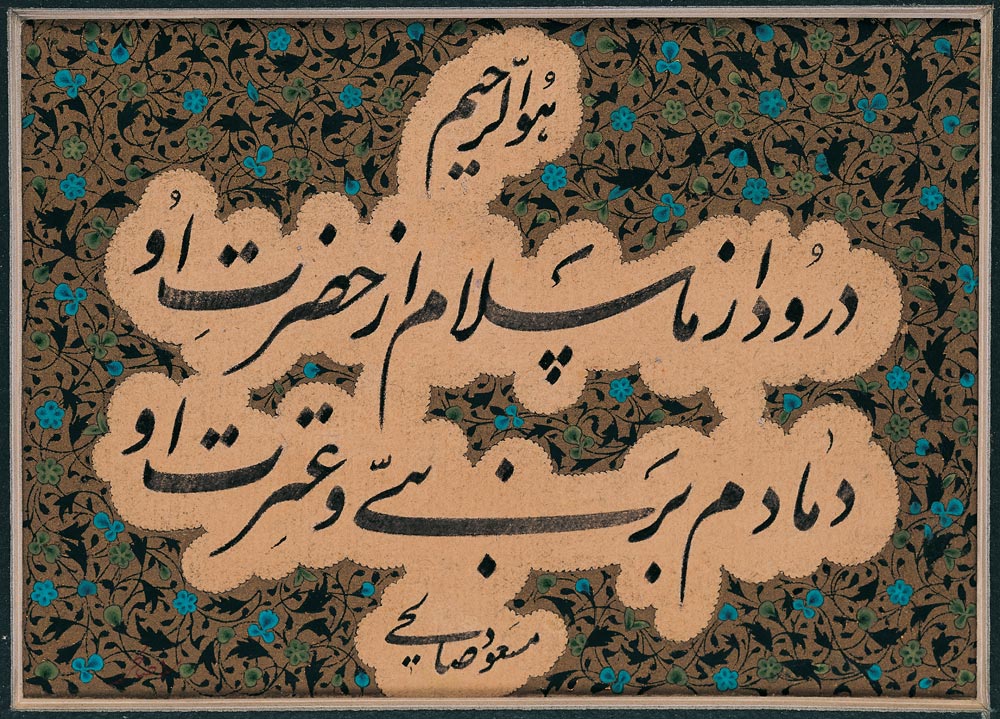 هُوالرحیم
درُود از ما سَلام از حضرتِ اُو
دمادم بَر نبیّ و عترت او
مسعود صالحی